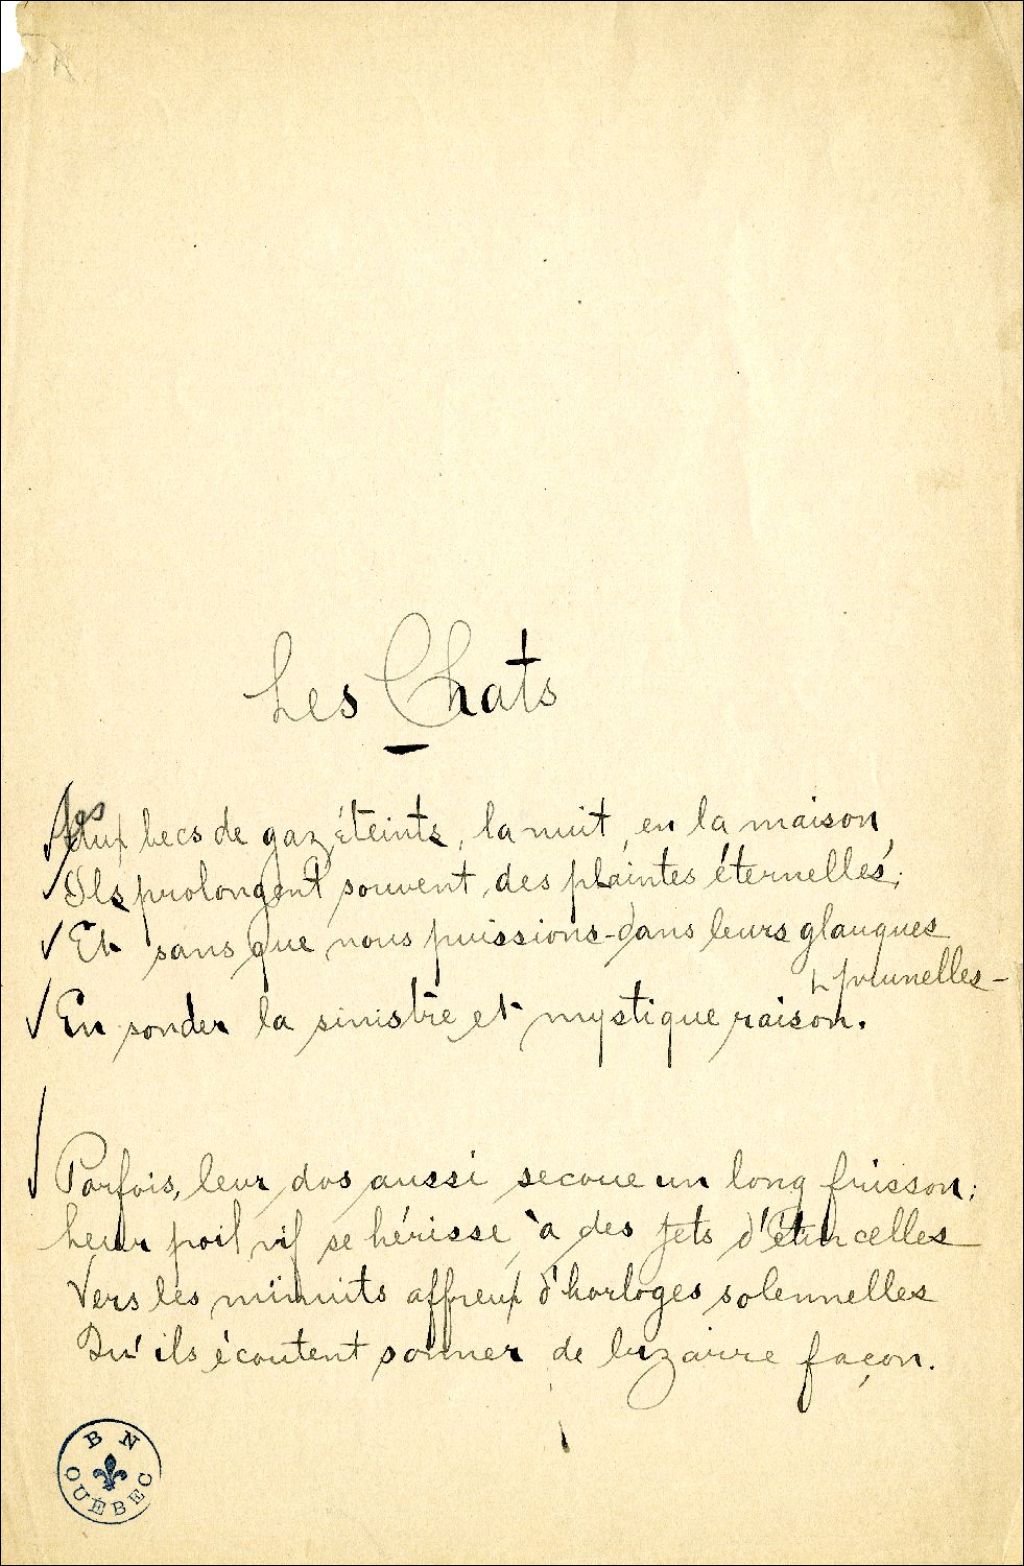 Les Chats
Aux becs de gaz éteints, la nuit, en la maison,
Ils prolongent souvent des plaintes éternelles;
Et sans que nous puissions dans leurs glauques
prunelles
En sonder la sinistre et mystique raison.
Parfois, leur dos aussi secoue un long frisson;
Leur poil vif se hérisse à des jets d'étincelles
Vers les minuits affreux d'horloges solennelles
Qu'ils écoutent sonner de bizarre façon.
BN
QUÉBEC